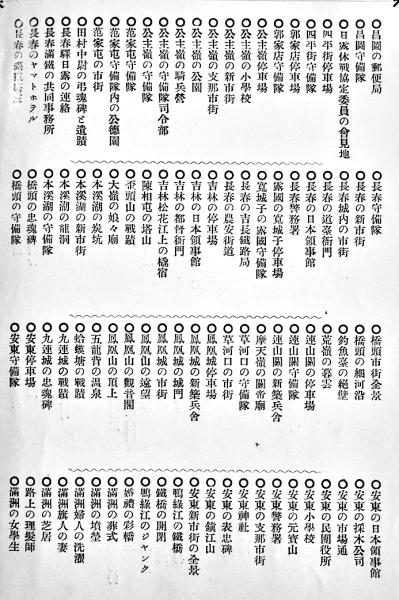 ○昌圖の郵便局
○昌圖守備隊
○日露休戰協定委員の會見地
○四平街停車場
○四平街守備隊
○郭家店停車場
○郭家店守備隊
○公主嶺停車場
○公主嶺の小學校
○公主嶺の新市街
○公主嶺の支那市街
○公主嶺の公園
○公主嶺の騎兵營
○公主嶺の守備隊司令部
○公主嶺の守備隊
○范家屯守備隊内の公德園
○范家屯の市街
○田村中尉の弔魂碑と遺蹟
○長春驛日露の連絡
○長春滿鐵の共同事務所
○長春のヤマトホテル
○長春の
○長春守備隊
○長春の新市街
○長春城内の市街
○長春の道臺衙門
○長春の日本領事館
○長春警務署
○露國の寬城子停車場
○寬城子の露國守備隊
○長春の吉長鐵路局
○長春の農安街道
○吉林の日本領事館
○吉林の停車場
○吉林の都督衙門
○吉林松花江上の橇宿
○陳相屯の塔山
○歪頭山の戰蹟
○大嶺の娘々廟
○本溪湖の炭坑
○本溪湖の新市街
○本溪湖の龍洞
○本溪湖の守備隊
○橋頭の忠魂碑
○橋頭の守備隊
○橋頭市街全景
○橋頭の細河沿
○釣魚臺の絕壁
○荒嶺の暮雲
○連山關の停車場
○連山關守備隊
○連山關の新築兵舍
○摩天嶺の關帝廟
○草河口の守備隊
○草河口の市街
○鳳凰城停車場
○鳳凰城の新築兵舍
○鳳凰城の城門
○鳳凰城の市街
○鳳凰山の遠望
○鳳凰山の觀音閣
○鳳凰山の頂上
○五龍背の温泉
○蛤蟆塘の戰蹟
○九連城の戰蹟
○九連城の忠魂碑
○安東停車場
○安東守備隊
○安東の日本領事館
○安東の採木公司
○安東の市場通
○安東の民團役所
○安東小學校
○安東の元寶山
○安東警務署
○安東の支那市街
○安東神社
○安東の表忠碑
○安東の鎭江山
○安東新市街の全景
○鴨綠江の鐵橋
○鐵橋の開閉
○鴨綠江のジヤンク
○婚禮の彩橋
○滿洲の葬式
○滿洲の墳塋
○滿洲婦人の洗濯
○滿洲旗人の妻
○滿洲の芝居
○路上の理髮師
○滿洲の女學生